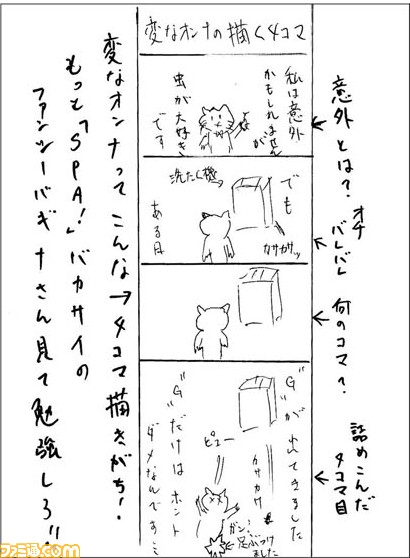 変なオンナの描く4コマ
私は意外
かもしれません
が
虫が大好き
です
でも
ある日
洗たく機
カサカサッ
"G"が出てきました
カサカサ
"G"だけはホント
ダメなんです…
ピュー
ガン!
足ぶつけ
ました
意外とは?
オチ
バレバレ
何のコマ?
詰めこんだ
4コマ目
変なオンナってこんな→4コマ描きがち!
もっと「SPA!」バカサイの
ファンツーバギナさん見て勉強しろ!!
ファミ通.com